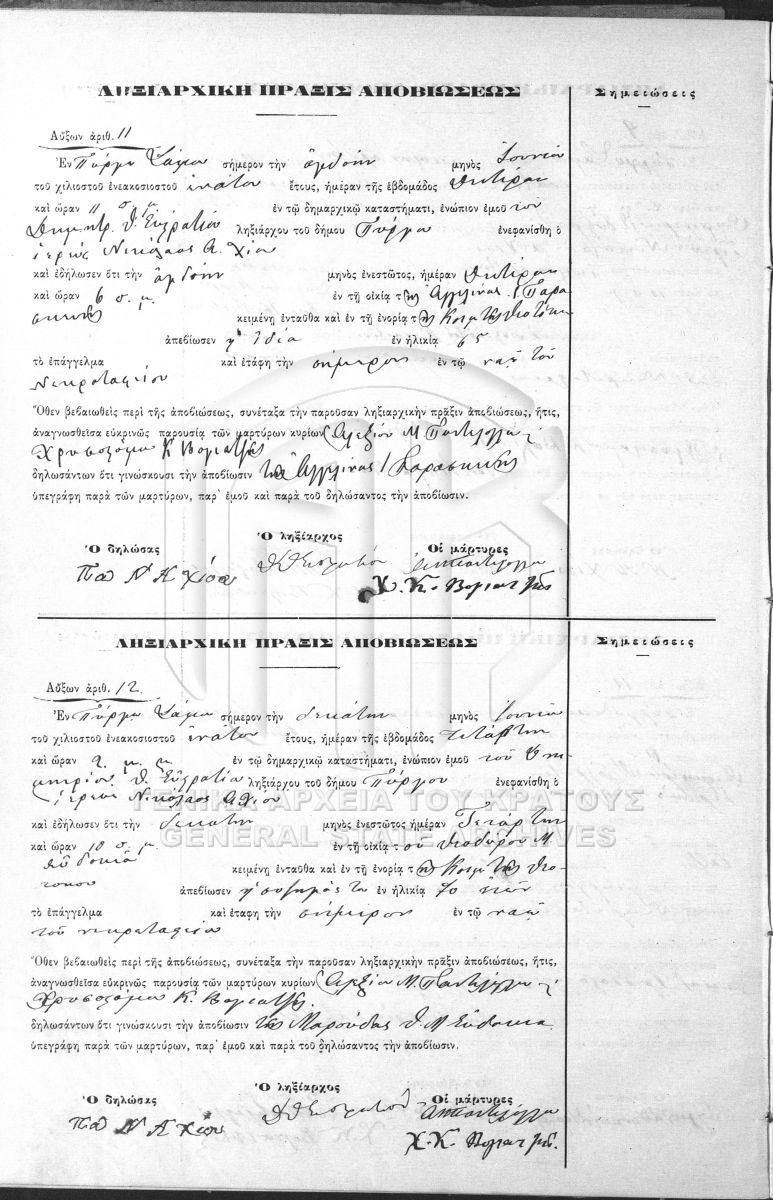 ΛΗΞΙΑΡΧΙΚΗ ΠΡΑΞΙΣ ΑΠΟΒΙΩΣΕΩΣ
Σημειώσεις
Αὔξων ἀριθ. 11
Ἐν Πύργῳ Σάμου σήμερον τὴν ὀγδόην μηνὸς Ἰουνίου
τοῦ χιλιοστοῦ ἐνεακοσιοστοῦ ἐνάτου ἔτους, ἡμέραν τῆς ἑβδομάδος Δευτέραν
καὶ ὥραν 11 π. μ. ἐν τῷ δημαρχικῷ καταστήματι, ἐνώπιον ἐμοῦ τοῦ
Δημητρ. Θ. ληξιάρχου τοῦ δήμου Πύργου ἐνεφανίσθη ὁ
ἱερεὺς Νικόλαος Α. Χίου
καὶ ἐδήλωσεν ὅτι τὴν ὀγδόην μηνὸς ἐνεστῶτος, ἡμέραν Δευτέραν
καὶ ὥραν 6 π. μ. ἐν τῇ οἰκίᾳ τῆς Ἀγγελίνας Ι Παρα
σκευῆς κειμένῃ ἐνταῦθα καὶ ἐν τῇ ἐνορίᾳ τῆς Κοιμ τῆς Θεοτόκου
ἀπεβίωσεν ἡ ἰδία ἐν ἡλικίᾳ 65
τὸ ἐπάγγελμα καὶ ἐτάφη τὴν σήμερον ἐν τῷ ναῷ τοῦ
Νεκροταφείου
Ὅθεν βεβαιωθεὶς περὶ τῆς ἀποβιώσεως, συνέταξα τὴν παροῦσαν ληξιαρχικὴν πρᾶξιν ἀποβιώσεως, ἥτις,
ἀναγνωσθεῖσα εὐκρινῶς παρουσίᾳ τῶν μαρτύρων κυρίων Ἀλεξίου Μ Παντελόγλου
Χρυσοστόμου Κ Βογιατζῆ
δηλωσάντων ὅτι γινώσκουσι τὴν ἀποβίωσιν τῆς Ἀγγελίνας Ι Παρασκευῆς
ὑπεγράφη παρὰ τῶν μαρτύρων, παρ' ἐμοῦ καὶ παρὰ τοῦ δηλώσαντος τὴν ἀποβίωσιν.
Ὁ δηλώσας
Ὁ ληξίαρχος
Οἱ μάρτυρες
Παπ Ν Α Χίου
Χ. Κ. Βογιατζῆς
ΛΗΞΙΑΡΧΙΚΗ ΠΡΑΞΙΣ ΑΠΟΒΙΩΣΕΩΣ
Σημειώσεις
Αὔξων ἀριθ. 12
Ἐν Πύργῳ Σάμου σήμερον τὴν δεκάτην μηνὸς Ἰουνίου
τοῦ χιλιοστοῦ ἐνεακοσιοστοῦ ἐνάτου ἔτους, ἡμέραν τῆς ἑβδομάδος τετάρτην
καὶ ὥραν 2. μ. μ. ἐν τῷ δημαρχικῷ καταστήματι, ἐνώπιον ἐμοῦ τοῦ Δη
μητρίου Θ. ληξιάρχου τοῦ δήμου Πύργου ἐνεφανίσθη ὁ
ἱερεὺς Νικόλαος Α Χίου
ΓΕΝΙΚΑ ΑΡΧΕΙΑ ΤΟΥ ΚΡΑΤΟΥΣ
GENERAL STATE ARCHIVES
καὶ ἐδήλωσεν ὅτι τὴν δεκάτην μηνὸς ἐνεστῶτος ἡμέραν Τετάρτην
καὶ ὥραν 10 π. μ. ἐν τῇ οἰκίᾳ τοῦ Θεοδώρου Μ
κειμένῃ ἐνταῦθα καὶ ἐν τῇ ἐνορίᾳ τῆς Κοιμ τῆς Θεο-
τόκου ἀπεβίωσεν ἡ σύζυγός του ἐν ἡλικίᾳ 70 ἐτῶν
τὸ ἐπάγγελμα καὶ ἐταφη τὴν σήμερον ἐν τῷ ναῷ
τοῦ νεκροταφείου
Ὅθεν βεβαιωθεὶς περὶ τῆς ἀποβιώσεως, συνέταξα τὴν παροῦσαν ληξιαρχικὴν πρᾶξιν ἀποβιώσεως, ἥτις,
ἀναγνωσθεῖσα εὐκρινῶς παρουσίᾳ τῶν μαρτύρων κυρίων Ἀλεξίου Μ. Παντελόγλου
Χρυσοστόμου Κ. Βογιατζῆ.
δηλωσάντων ὅτι γινώσκουσι τὴν ἀποβίωσιν τῆς Μαρούδας Θ. Μ
ὑπεγράφη παρὰ τῶν μαρτύρων, παρ' ἐμοῦ καὶ παρὰ τοῦ δηλώσαντος τὴν ἀποβίωσιν.
Ὁ δηλώσας
Ὁ ληξίαρχος
Οἱ μάρτυρες
Παπ Ν Α Χίου
Χ. Κ. Βογιατζῆς.